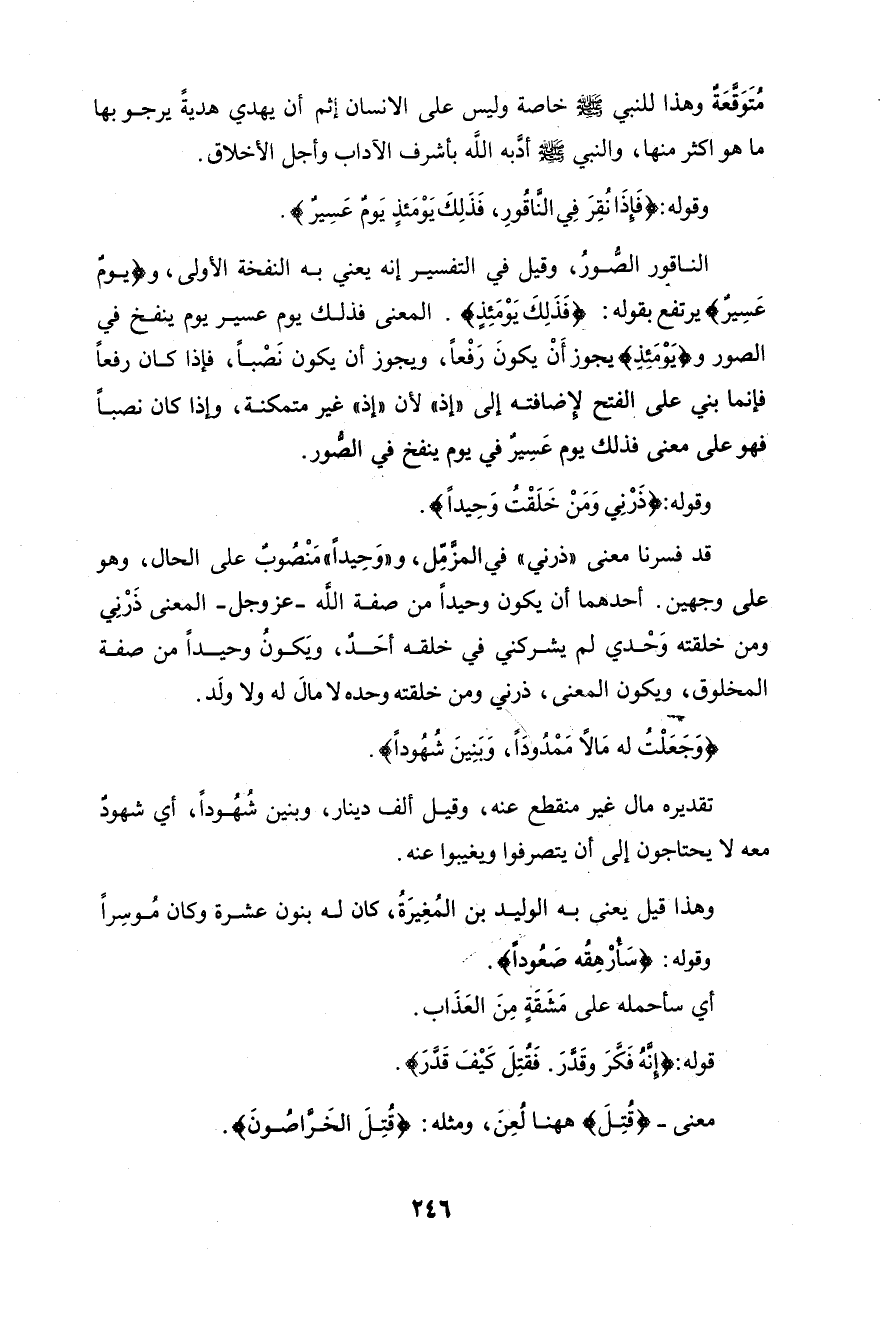 مُتَوَقَّعَةٌ وهذا للنبي ﷺ خاصة وليس على الانسان إثم أن يهدي هديةً يرجو بها
ما هو اكثر منها، والنبي ﷺ أدَّبه اللَّه بأشرف الآداب وأجل الأخلاق.
وقوله: ﴿فَإِذَا نُقِرَ فِي النَّاقُورِ، فَذَلِكَ يَوْمَئذٍ يَومٌ عَسِيرٌ﴾.
الناقور الصُّورُ، وقيل في التفسير إنه يعني به النفخة الأولى، و﴿يومٌ
عَسِيرٌ﴾ يرتفع بقوله: ﴿فَذَلِكَ يَوْمَئِذٍ﴾. المعنى فذلك يوم عسير يوم ينفخ في
الصور و﴿يَوْمَئِذٍ﴾ يجوز أَنْ يكونَ رَفْعاً، ويجوز أن يكون نَصْباً، فإذا كان رفعاً
فإنما بني على الفتح لإِضافته إلى «إذ» لأن «إذ» غير متمكنة، وإذا كان نصباً
فهو على معنى فذلك يوم عَسِيرٌ في يوم ينفخ في الصُّور.
وقوله: ﴿ذَرْنِي وَمَنْ خَلَقْتُ وَحِيداً﴾.
قد فسرنا معنى «ذرني» في المزَّمِّل، و«وَحِيداً» مَنْصُوبٌ على الحال، وهو
على وجهين. أحدهما أن يكون وحيداً من صفة اللَّه -عز وجل- المعنى ذَرْنِي
ومن خلقته وَحْدي لم يشركني في خلقه أحَدٌ، ويَكونُ وحيداً من صفة
المخلوق، ويكون المعنى، ذرني ومن خلقته وحده لا مالَ له ولا ولَد.
﴿وَجَعَلْتُ له مَالاً مَمْدُودَاً، وَبَنِينَ شُهُوداً﴾.
تقديره مال غير منقطع عنه، وقيل ألف دينار، وبنين شُهُوداً، أي شهودٌ
معه لا يحتاجون إلى أن يتصرفوا ويغيبوا عنه.
وهذا قيل يعنى به الوليد بن المُغِيرَةُ، كان له بنون عشرة وكان مُوسِراً
وقوله: ﴿سَأُرْهِقُه صَعُوداً﴾.
أي سأحمله على مَشَقَةٍ مِنَ العَذَاب.
قوله: ﴿إِنَّهُ فَكَّرَ وقَدَّرَ. فَقُتِلَ كَيْفَ قَدَّرَ﴾.
معنى - ﴿قُتِلَ﴾ ههنا لُعِنَ، ومثله: ﴿قُتِلَ الخَرَّاصُونَ﴾.
٢٤٦